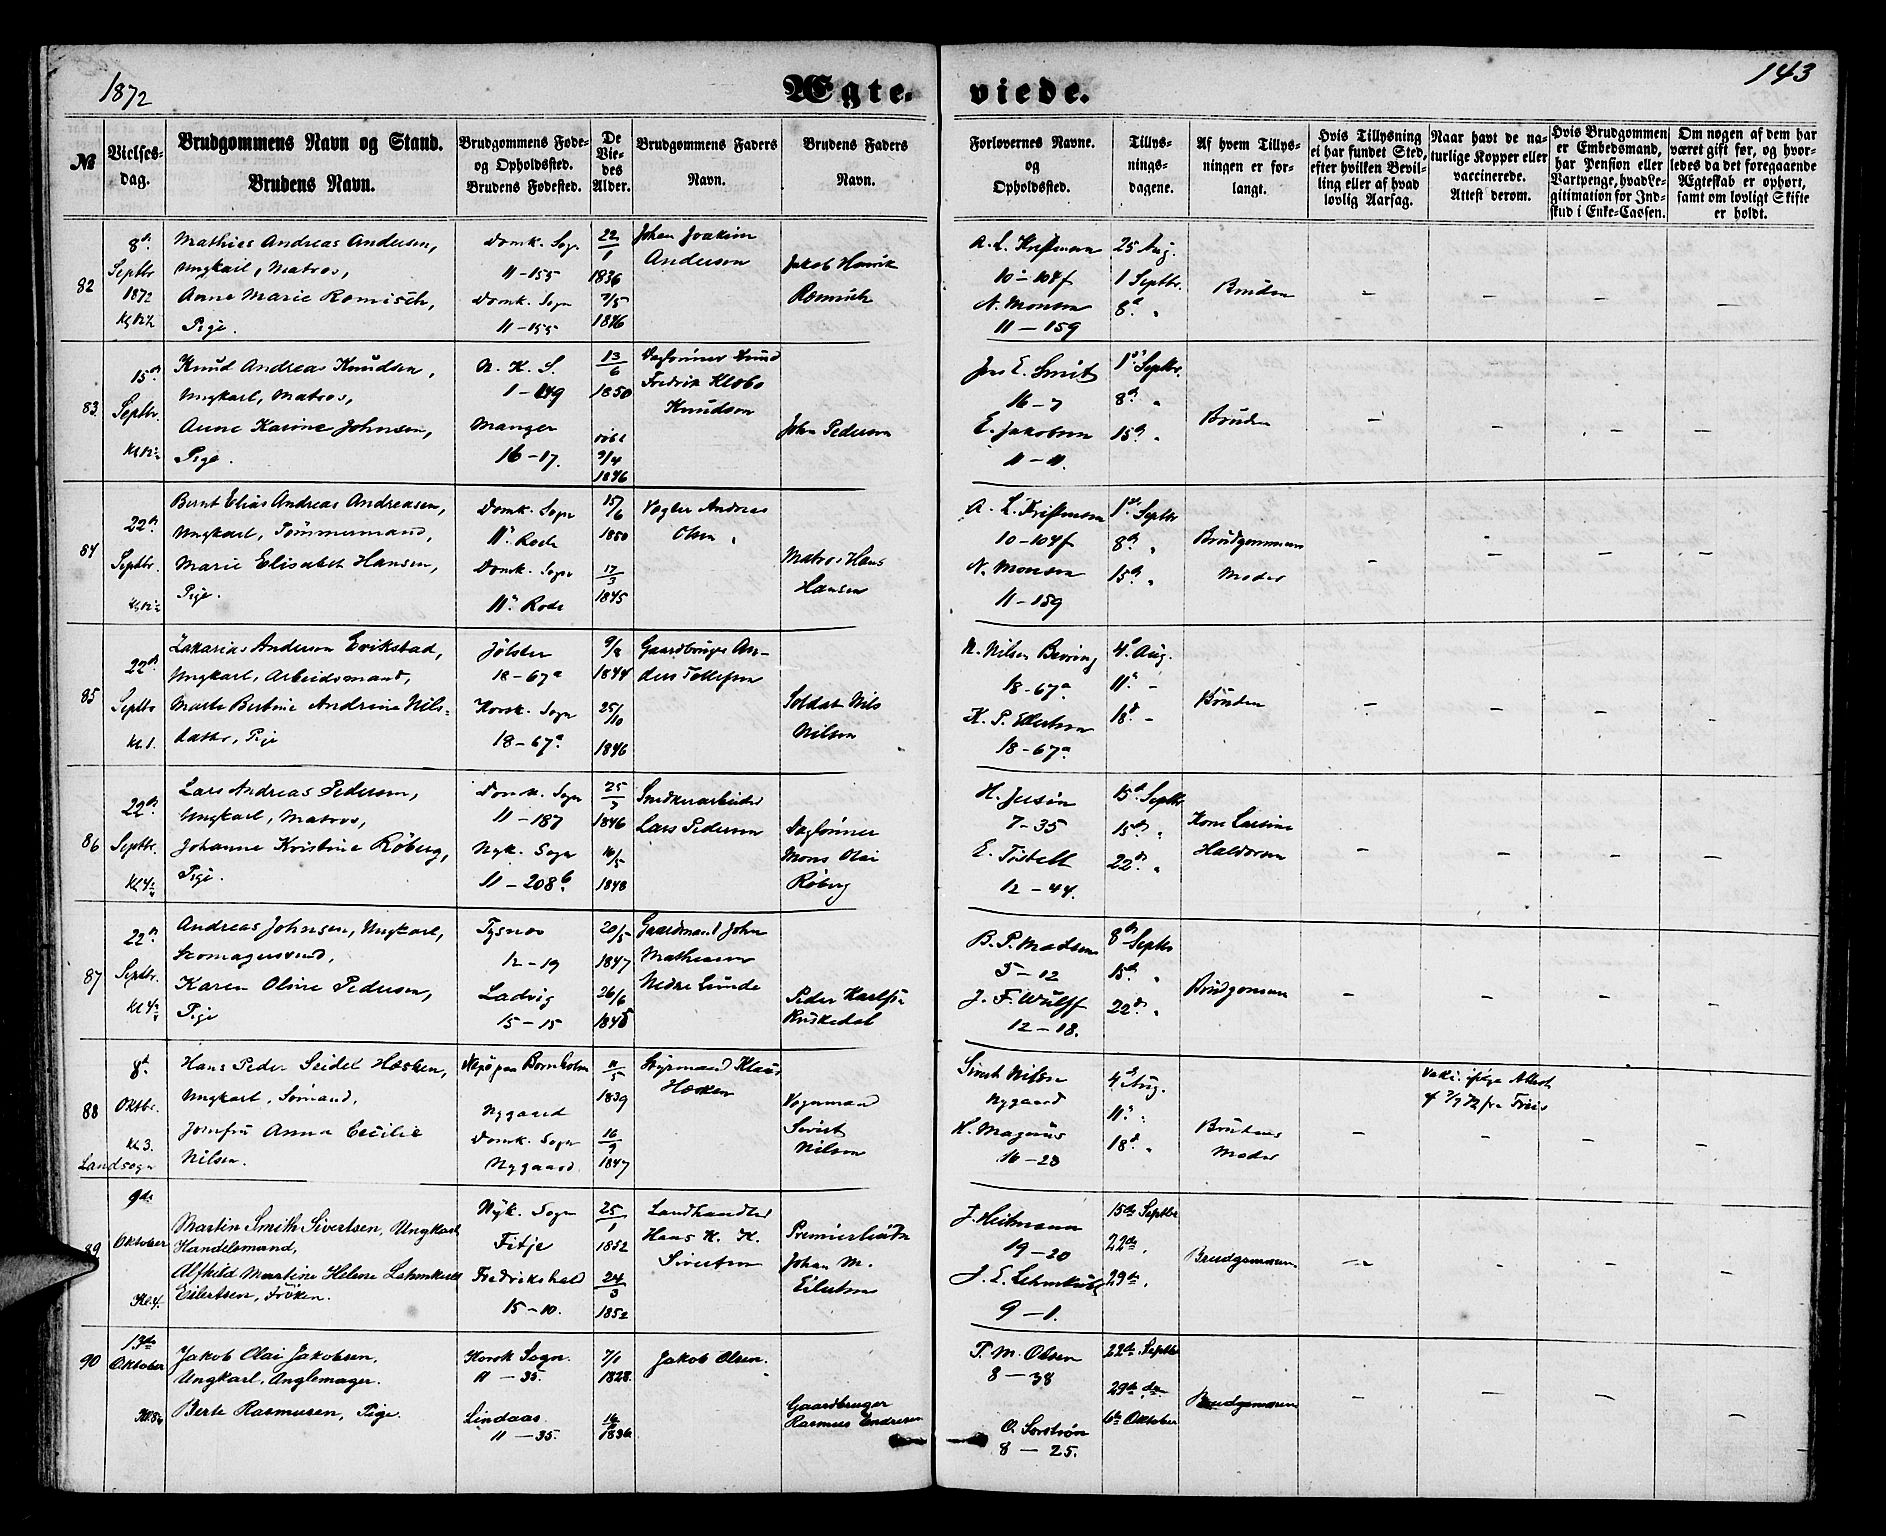 1872
Ægte-
viede.
143
№
Vielses-
dag.
Brudgommens Navn og Stand.
Brudens Navn.
Brudgommens Føde-
og Opholdssted.
Brudens Fødested.
De
Vie-
des
Alder.
Brudgommens Faders
Navn.
Brudens Faders
Navn.
Forlovernes Navne.
og
Opholdssted.
Tillys-
nings-
dagene.
Af hvem Tillys-
ningen er for-
langt.
Hvis Tillysning
ei har fundet Sted,
efter hvilken Bevil-
ling eller af hvad
lovlig Aarsag.
Naar havt de na-
turlige Kopper eller
vaccinerede.
Attest derom.
Hvis Brudgommen
er Embedsmand,
har Pension eller
Vartpenge, hvad Le-
gitimation for Ind-
skud i Enke-Cassen.
Om nogen af dem har
været gift før, og hvor-
ledes da det foregaaende
Ægteskab er ophørt,
samt om lovligt Skifte
er holdt.
82
8de
Septbr
1872
Mathias Andreas Andersen,
Ungkarl, Matros,
Anne Marie Romisch,
Pige.
Domk. Sogn
11-155
Domk. Sogn
11-155
22/1
1836
1846
Johan Joakim
Andersen
Jakob Henrik
Romisch
A. L. Kristensen
10-104f
N. Monsen
11-159
25 Aug.
1 Septbr.
8de "
Bruden
83.
15de
Septbr.
Knud Andreas Knudsen,
Ungkarl, Matros,
Anne Karine Johnsen,
Pige.
N. K. S.
1-149
Manger
16-17.
13/6
1850
døbt
9/4
1846
Dagleier Knud
Fredrik Klebo
Knudsen
John Pedersen
Jens E. Smit
16-7
E. Jakobsen
11-11.
1ste Septbr.
8de "
15de "
Bruden
84
22de
Septbr.
Bernt Elias Andreas Andreasen,
Ungkarl, Tømmermand,
Marie Elisabet Hansen,
Pige.
Domk. Sogn
11te Rode
Domk. Sogn
11te Rode
15/6
1850
17/3
1845
Vægter Andreas
Olsen
Matros Hans
Hansen
A. L. Kristensen
10-104f
N. Monsen
11-159
1ste Septbr
8de "
15de "
Brudgommens
Moder
85
22de
Septbr
Kl. 1.
Zakarias Andersen Erikstad,
Ungkarl, Arbeidsmand,
Marte Bertine Andrine Nils-
datter, Pige
Jølster
18-67a
Korsk. Sogn
18-67a
9/8
1844
25/10
1846
Gaardbruger An-
ders Tollefsen
Soldat Nils
Nilsen
18-67a
K. P. Ellertsen
18-67a
4de Aug.
11te -
18de -
Bruden
86
22de
Septbr.
Lars Andreas Pedersen,
Ungkarl, Matros,
Johanne Kristine Røberg,
Pige.
Domk. Sogn
11-187
Nyk. Sogn
11-208b
1846
16/5
1848
Snedkerarbeider
Lars Pedersen
Dagleier
Mons Olai
Røberg
H. Jersin
7-35
12-44.
15de Septbr
15de "
22de "
Kone Larsine
Haldorsen
87
22de
Septbr.
Andreas Johnsen, Ungkarl,
Skomagersvend,
Karen Oline Pedersen,
Pige
Tysnes
12-19
Ladvig
15-15
20/5
1847
26/6
1845
Gaardmand John
Mathiesen
Nedre Lunde
Peder Karlsen
Ruskedal
B. P. Madsen
5-12
J. F. Wulff
12-18.
8de Septbr
15de "
22de "
Brudgommen
88
8de
Oktbr.
Kl. 3.
Landsogn
Hans Peder Seidel Hesken,
Ungkarl, Sømand,
Jomfru Anna Cecilie
Nilsen.
Bornholm
Nygaard
Domk. Sogn
Nygaard
11/5
1839
16/9
1847
Styrmand Klaus
Hesken
Vognmand
Sivert
Nilsen
Sivert Nilsen
Nygaard
H. Magnus
16-28
4de Aug.
11te "
18de "
Brudens
Moder
89
9de
Oktober
Kl. 4.
Martin Smith Sivertsen, Ungkarl,
Handelsmand,
Alfhild Martine Helene Lehmkuhl
Eilertsen, Frøken.
Nyk. Sogn
Fitje
Fredrikshald
15-10.
25/1
1852
24/3
1852
Landhandler
Hans K. K.
Sivertsen
Premierløitn
Johan M.
Eilertsen
J. Heitmann
19-20
J. E. Lehmkuhl
9-1.
15de Septbr
22de "
29de "
Brudgommen
90
13de
Oktober
Jakob Olai Jakobsen,
Ungkarl, Anglemager.
Berte Rasmusen, Pige.
Korsk Sogn.
11-35.
Lindaas.
11-35.
7/1
1828
1836
Jakob Olsen.
Gaardbruger
Rasmus Endresen
T. M. Olsen
8-38
O. Sørstrøm
8-25.
22de Septbr
29de do
6te Oktober
Brudgommen